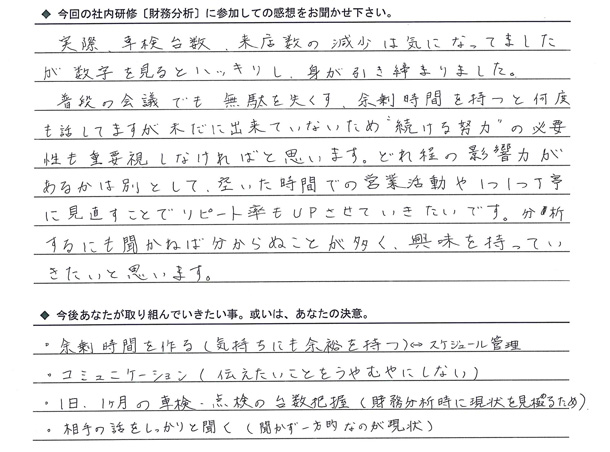 ◆ 今回の社内研修〔財務分析〕に参加しての感想をお聞かせ下さい。
実際、車検台数、来店数の減少は気になってました
が数字を見るとハッキリし、身が引き締まりました。
普段の会議でも無駄を失くす、余剰時間を持つと何度
も話してますが未だに出来ていないため"続ける努力"の必要
性も重要視しなければと思います。どれ程の影響力が
あるかは別として、空いた時間での営業活動や1つ1つ丁寧
に見直すことでリピート率もUPさせていきたいです。分析
するにも聞かねば分からぬことが多く、興味を持ってい
きたいと思います。
◆ 今後あなたが取り組んでいきたい事。或いは、あなたの決意。
・余剰時間を作る(気持ちにも余裕を持つ)⇔スケジュール管理
・コミュニケーション(伝えたいことをうやむやにしない)
・1日、1ヶ月の車検・点検の台数把握(財務分析時に現状を見据るため)
・相手の話をしっかりと聞く(聞かず一方的なのが現状)